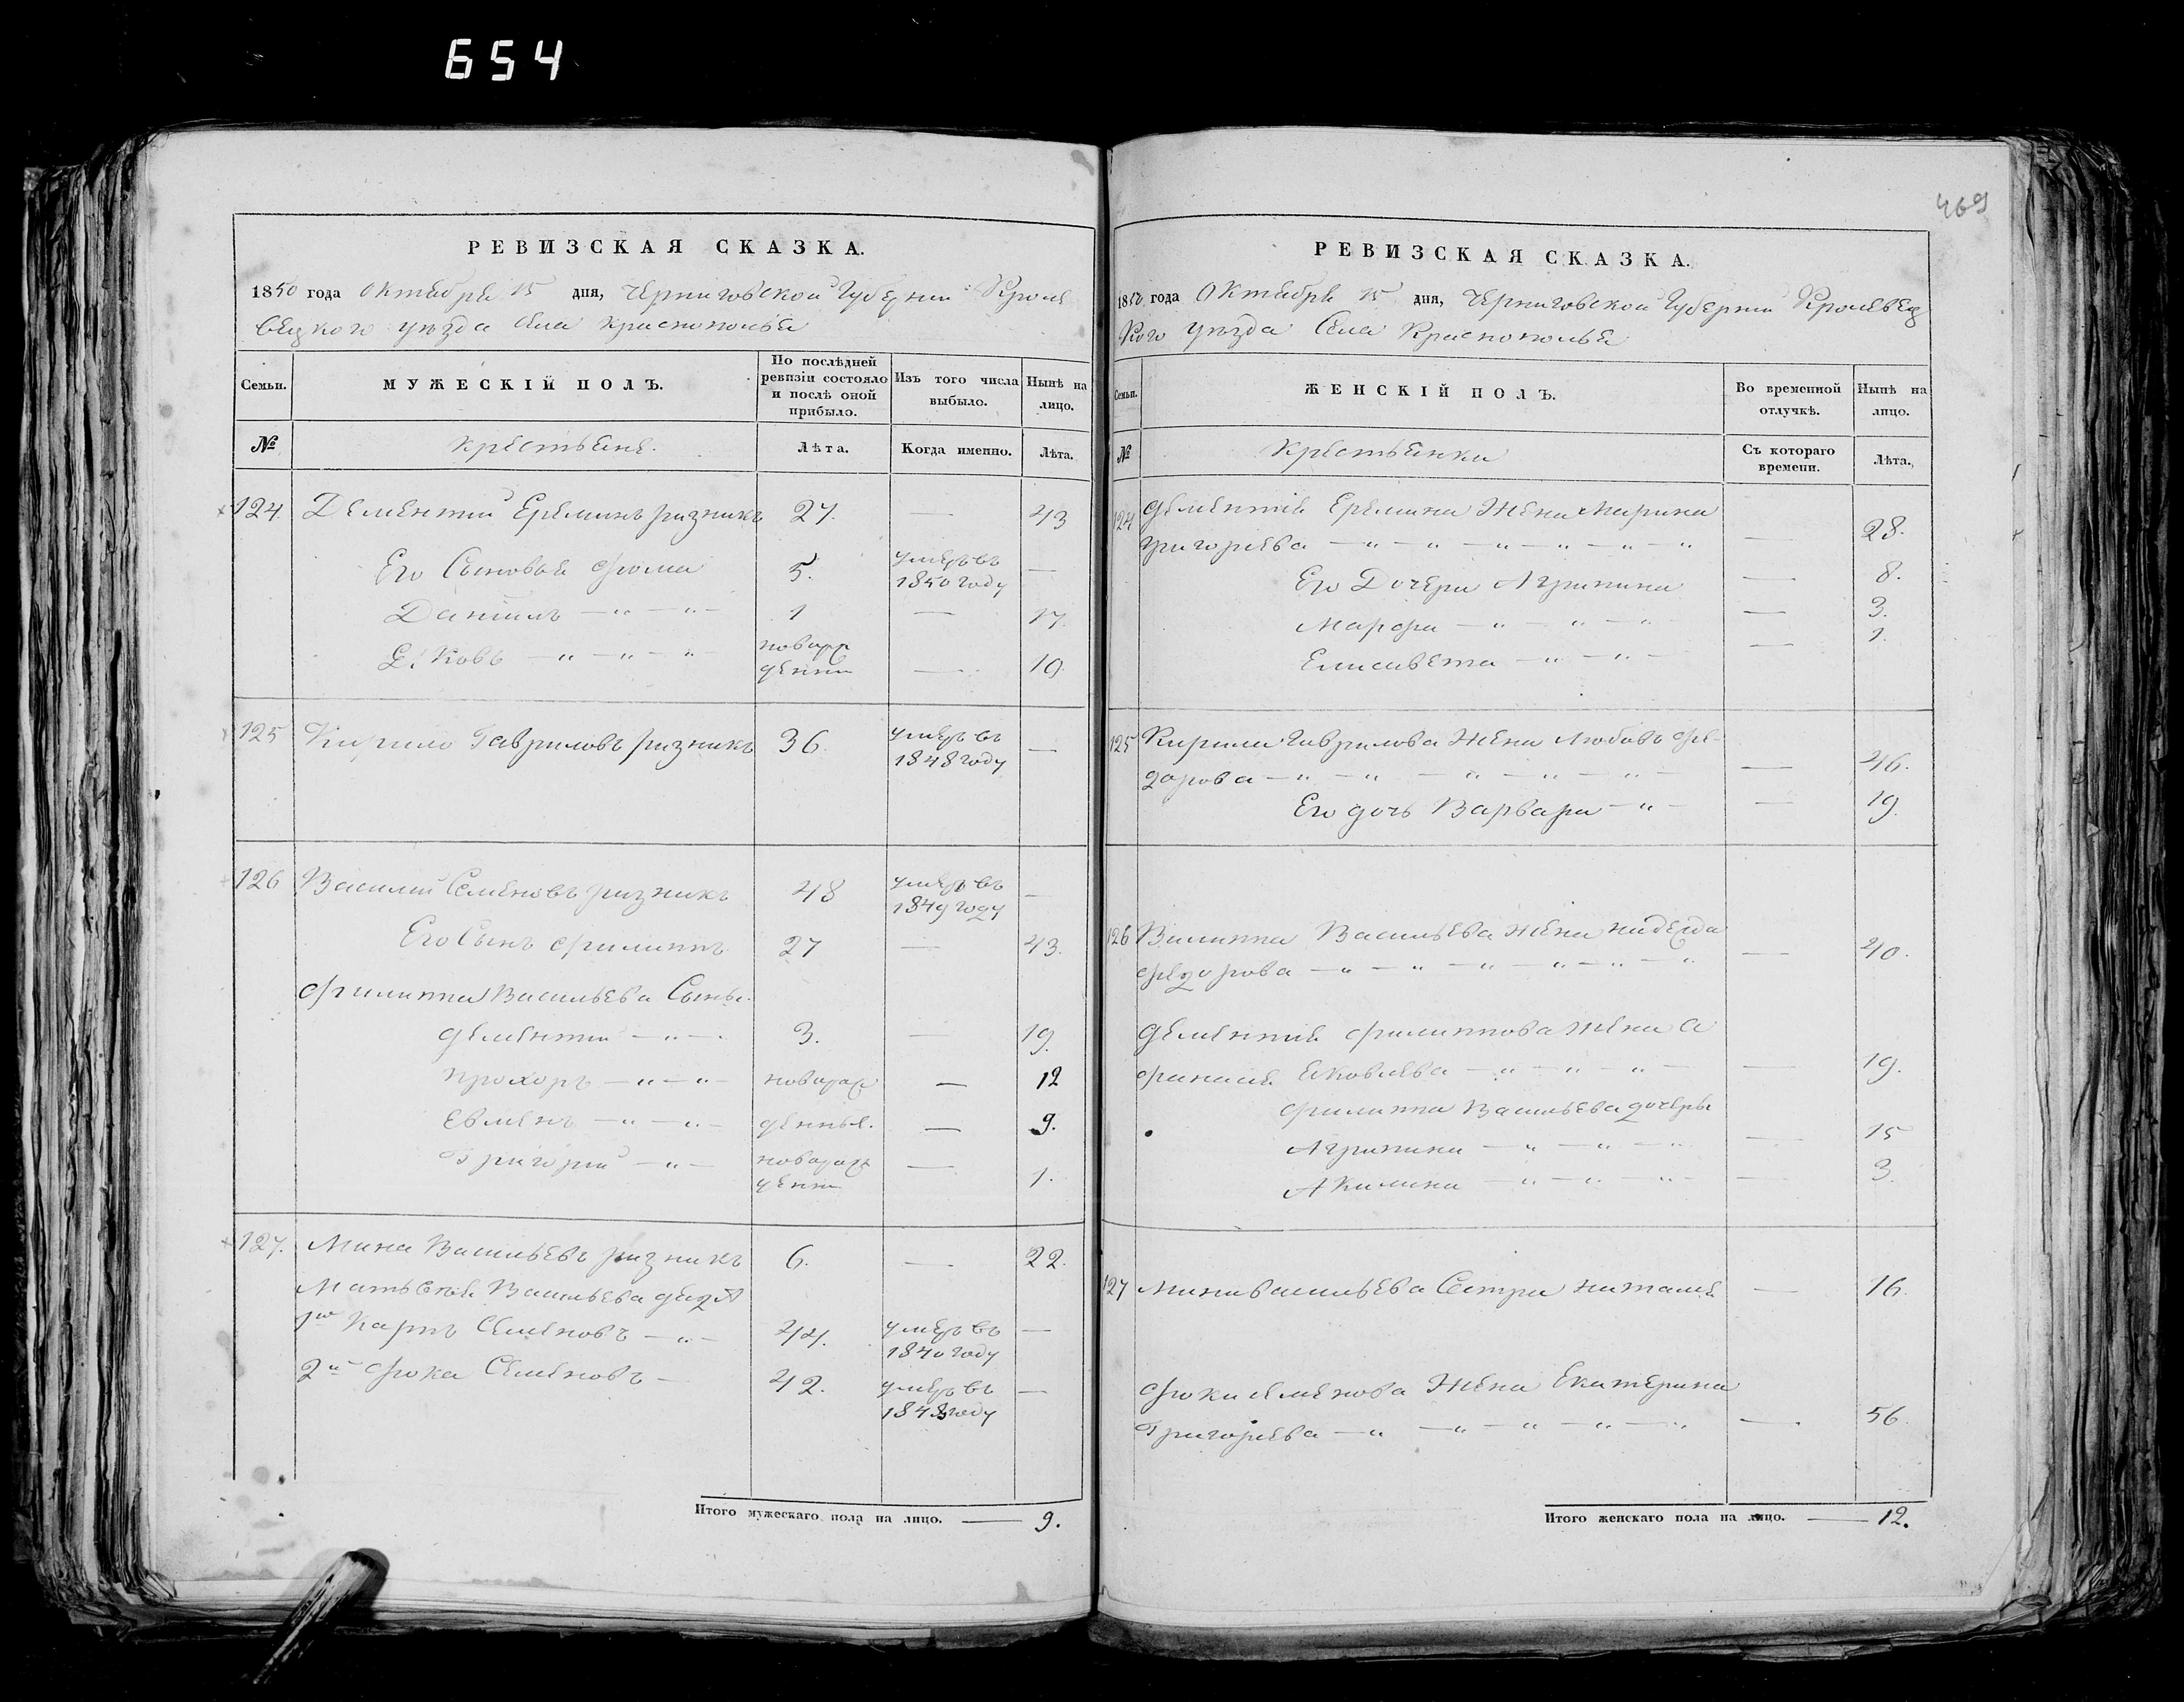 654
469
РЕВИЗСКАЯ СКАЗКА.
1850 года Октября 15 дня, Черниговской Губерніи Кроле
вецкого уѣзда Села Краснополья
Семьи.
МУЖЕСКІЙ ПОЛЪ.
По послѣдней ревизіи состояло и послѣ оной прибыло.
Изъ того числа выбыло.
Нынѣ на лицо.
№ крестьяне. Лѣта. Когда именно. Лѣта.
124 Дементій Ереминъ ризникъ 27. — 43
Его Сыновья Фома 5. умеръ въ 1850 году —
Даніилъ — " — " — 1 — 17.
Яковъ — " — " — " новорожденни — 10
125 Кирило Гавриловъ ризникъ 36. умеръ въ 1848 году —
126 Василий Семеновъ ризникъ 48 умеръ въ 1849 году —
Его Сынъ Филиппъ 27 — 43.
Филиппа Васильева Сыны.
Дементій — " — 3. — 19.
Прохоръ — " — " — новорож — 12
Евменъ — " — " — денные. — 9.
Григорій — " — новорожденни — 1.
127. Мина Васильевъ ризникъ 6. — 22.
Мины Васильева дядя
1й Карпъ Семеновъ — " — 44. умеръ въ 1840 году —
2й Фока Семеновъ — 42. умеръ въ 1848 году —
Итого мужескаго пола на лицо. — 9.
РЕВИЗСКАЯ СКАЗКА.
1850 года Октября 15 дня, Черниговской Губерніи Кролевец
кого уѣзда Села Краснополья
Семьи.
ЖЕНСКІЙ ПОЛЪ.
Во временной отлучкѣ.
Нынѣ на лицо.
№ Крестьянки Съ котораго времени. Лѣта.
124 Дементія Еремина Жена Марина
Григорьева — " — " — " — " — " — " — 28.
Его Дочери Агрипина — 8.
Марфа — " — " — " — 3.
Елисавета — " — " — — 1.
125 Кирила Гаврилова Жена Любовь Фе-
дорова — " — " — " — " — " — — 46.
Его дочь Варвара — " — — 19.
126 Филиппа Васильева жена надежда
Федорова — " — " — " — " — " — " — 40.
Дементія Филиппова жена а
фанасія Яковлева — " — " — " — — 19.
Филиппа Васильева дочеры
Агрипина — " — " — — 15
Акилина — " — " — " — — 3.
127 Мины васильева Сестра наталія — 16.
Фоки семенова Жена Екатерина
Григорьева — " — " — " — " — " — 56.
Итого женскаго пола на лицо. — 12.